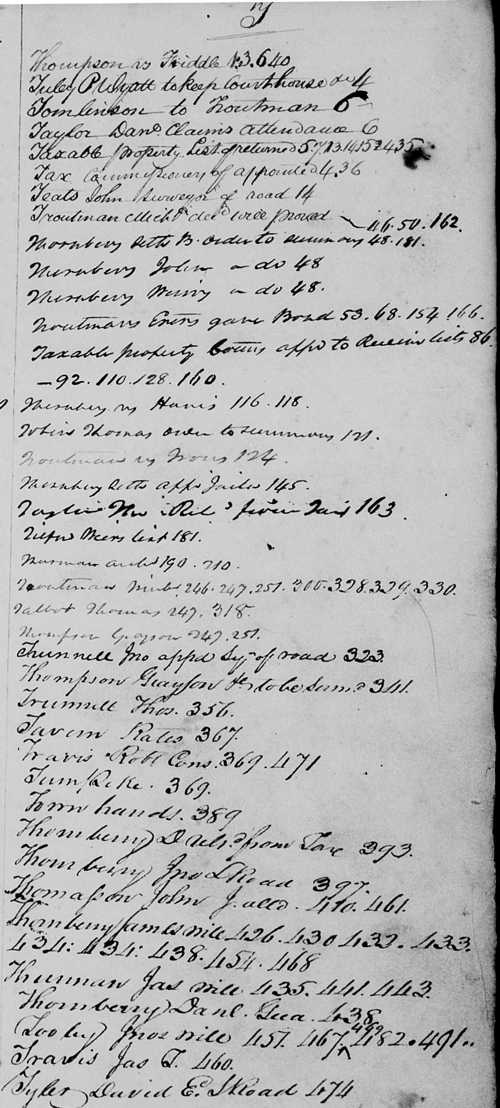 Thompson vs Friddle 13.640
Tuley P. Wyatt to keep Courthouse &c 4
Tomlinson to Troutman 6
Taylor Danl Claims attendance 6
Taxable property List of returned 5.7.13.14.15.24.35
Tax Commissioners appointed 4.36
Teats John Surveyor of road 14
Troutman Michl decd will proved — 46.50.162.
Thornbery Seth B. order to summons 48.181.
Thornbery John — do 48
Thornbery — do 48.
Troutmans Exors gave Bond 53.68.154.166.
Taxable property Comrs appd to Receive lists 86
— 92.110.128.160.
Thornbery vs Harris 116.118.
Tobin Thomas order to summons 121.
Troutman vs 124.
Thornbery Seth appd Jailor 145.
Taylor Wm Reld from Tax 163.
list 181.
Thurman 190.210.
Troutman 246.247.251.300.328.329.330.
Talbot Thomas 247.318.
Thompson Grayson 247.251.
Trunnell Jno appd Sy of road 323.
Thompson Grayson to be Sumd 341.
Trunnell Thos. 356.
Tavern Rates 367.
Travis Robt Cons. 369.471
Turnpike. 369.
Town hands. 389
Thornberry D Relsd from Tax 393.
Thornberry Jno S Road 397.
Thomasson John J. alld. 410.461.
Thornberry James will 426.430.432.433.
434:434:438.454.468
Thurman Jas will 435.441.443.
Thornberry Danl. Gua. 438
Tooley Jno's will 457.467.482.491..
Travis Jas T. 460.
Tyler David E. S Road 474